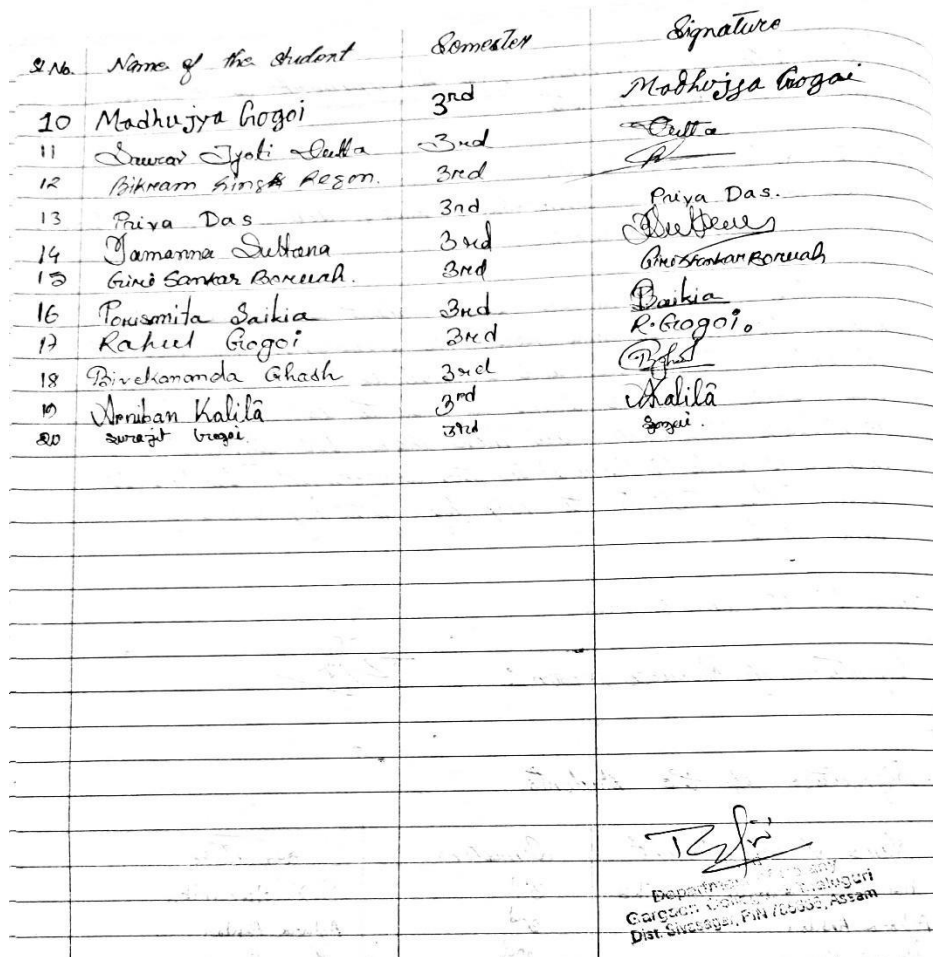 Sl No. Name of the student Semester Signature
10 Madhujya Gogoi 3rd Madhujya Gogoi
11 Saurav Jyoti Dutta 3rd Dutta
12 Bikram Singh Regon. 3rd
13 Priya Das 3rd Priya Das.
14 Tamanna Sultana 3rd
15 Giri Sankar Boruah. 3rd Giri Sankar Boruah
16 Porismita Saikia 3rd Saikia
17 Rahul Gogoi 3rd R. Gogoi.
18 Bivekananda Ghash 3rd
19 Arniban Kalita 3rd Kalita
20 Surajit Gogoi. 3rd Gogoi.
Department
Gargaon
Dist. Sivasagar, PIN Assam